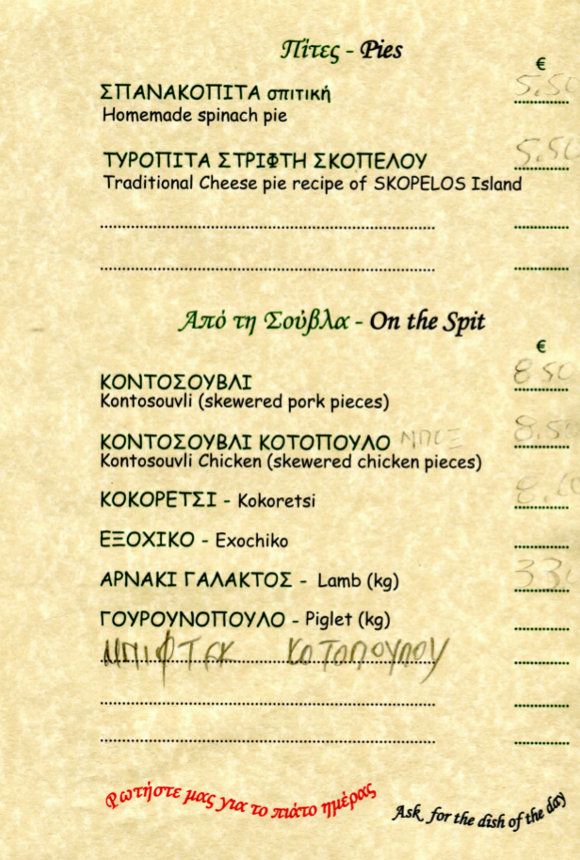 Πίτες - Pies
€
ΣΠΑΝΑΚΟΠΙΤΑ σπιτική 5.50
Homemade spinach pie
ΤΥΡΟΠΙΤΑ ΣΤΡΙΦΤΗ ΣΚΟΠΕΛΟΥ 5.50
Traditional Cheese pie recipe of SKOPELOS Island
Από τη Σούβλα - On the Spit
€
ΚΟΝΤΟΣΟΥΒΛΙ 8.50
Kontosouvli (skewered pork pieces)
ΚΟΝΤΟΣΟΥΒΛΙ ΚΟΤΟΠΟΥΛΟ 8.50
Kontosouvli Chicken (skewered chicken pieces)
ΚΟΚΟΡΕΤΣΙ - Kokoretsi
ΕΞΟΧΙΚΟ - Exochiko
ΑΡΝΑΚΙ ΓΑΛΑΚΤΟΣ - Lamb (kg)
ΓΟΥΡΟΥΝΟΠΟΥΛΟ - Piglet (kg)
ΜΠΙΦΤΕΚ ΚΟΤΟΠΟΥΛΟΥ
Ρωτήστε μας για το πιάτο ημέρας
Ask for the dish of the day